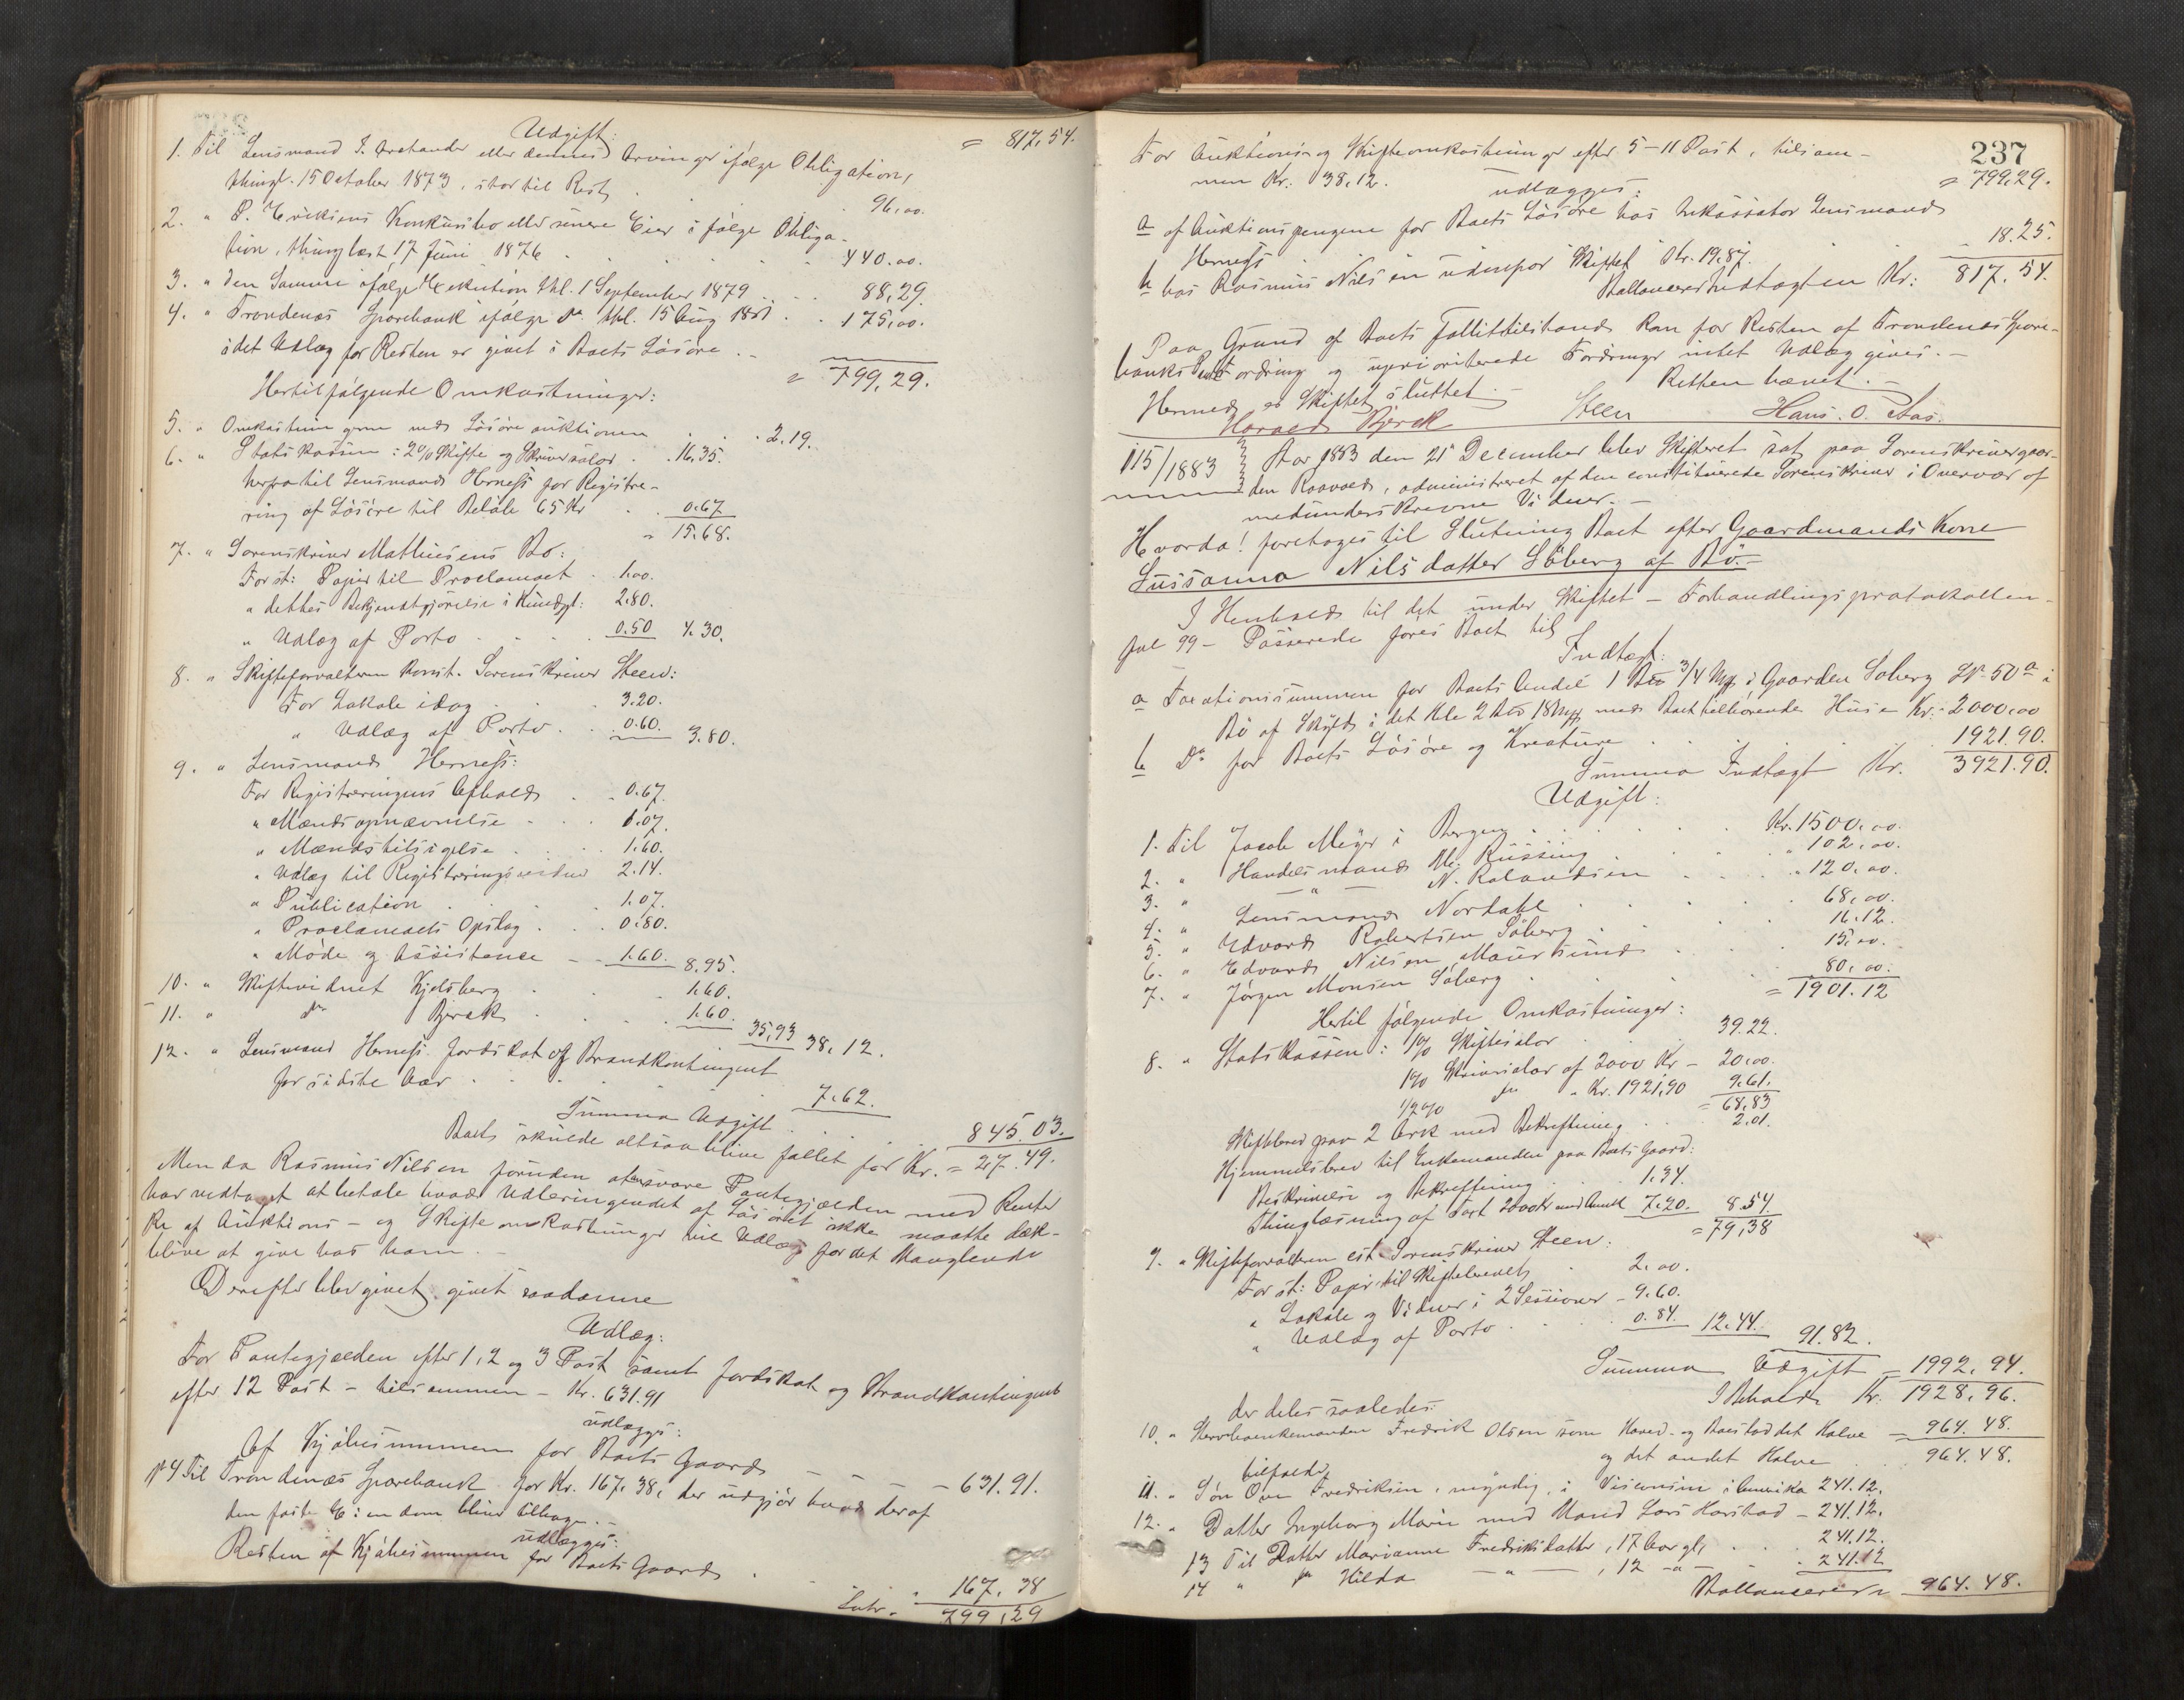 Udgift: = 817,54.
1. Til Lensmand J. eller dennes Arvinger ifølge Obligation,
thingl. 15 October 1873, stor til Rest 96,00.
2. " P. Eriksens Konkursbo eller senere Eier i følge Obliga-
tion, thinglæst 17 Juni 1876 . . . 440.00.
3. " den Samme ifølge Exekution thl. 1 September 1879 . . 88,29.
4. " Trondenæs Sparebank ifølge do. thl. 15 Aug 1881 . . 175,00.
idet Udlæg for Resten er givet i Boets Løsøre. -
= 799,29.
Hertil følgende Omkostninger:
5. " Omkostningerne ved Løsøreauktionen . . . 2.19.
6. " Statskassen: 2% Skifte og Skriversalær . . 16,35.
herfra til Lensmand Herness for Registre-
ring af Løsøre til Beløb 65 Kr . . 0.67
" 15.68.
7. " Sorenskriver Mathiesens Bo:
For st: Papir til Proclamaet . 1.00.
" dettes Bekjendtgjørelse i Kundgl: 2.80.
" Udlæg af Porto . . . 0.50 4.30.
8. " Skifteforvalteren konst. Sorenskriver Steen:
For Lokale idag . . . 3.20.
" Udlæg af Porto . . 0.60. 3.80.
9. " Lensmand Herness:
For Registreringens Afhold . . 0.67.
" Mændsopnævnelse . . . 1.07.
" Mændstilsigelse . . . 1.60.
" Udlæg til Registreringsmænd 2.14.
" Publication . . . 1.07.
" Proclamaets Opslag . . . 0.80.
" Møde og Assistence - - 1.60. 8.95.
10. " Skiftevidnet Kjelsberg . . . 1.60.
11. " do Bjerck . . . 1.60.
35,93 38,12.
12. " Lensmand Herness Jordskat og Brandkontingent
for sidste Aar . . . 7.62.
Summa Udgift . . . 845.03.
Boets skulde altsaa blive fallet for Kr. = 27.49.
Men da Rasmus Nilsen foruden at svare Pantegjælden med Renter
har vedtaget at betale hvad Udbringendet af Løsøret ikke maatte dæk-
ke af Auktions- og Skifteomkostninger vil Udlæg for det Manglende
blive at give hos ham. -
Derefter blev givet givet saadanne
Udlæg:
For Pantegjælden efter 1, 2 og 3 Post samt Jordskat og Brandkontingent
efter 12 Post - tilsammen - Kr. 631.91
udlægges:
Af Kjøbesummen for Boets Gaard - - 631.91.
No 4 Til Trondenæs Sparebank for Kr. 167,38, der udgjør hvad deraf
den faste Eiendom bliver tilbage. -
udlægges:
Resten af Kjøbesummen for Boets Gaard . . . 167,38
Latr. 799,29
237
For Auktions og Skifteomkostninger efter 5-11 Post, tilsam- = 799,29.
men Kr. 38,12.
udlægges:
a af Auktionspengene for Boets Løsøre hos Inkassator Lensmand
Herness . . . 18.25.
b hos Rasmus Nilsen udenfor Skiftet Kr. 19.87.
Ballancerer Indtægten Kr: 817,54.
Paa Grund af Boets Fallittilstand kan for Resten af Trondenæs Spare-
banks Fordring og upriviterede Fordringer intet Udlæg gives. -
Hermed er Skiftet sluttet. - Retten hævet. -
Harald Bjerck Steen Hans. O. Aas.
115/1883 Aar 1883 den 21 December blev Skifteret sat paa Sorenskrivergaar-
den Raavold, administreret af den constituerede Sorenskriver i Overvær af
medunderskrevne Vidner. -
Hvorda! foretoges til Slutning Boet efter Gaardmands Kone
Sussanna Nilsdatter Søberg af Bø. -
I Henhold til det under Skiftet - Forhandlingsprotokollen
fol 99 - Passerede føres Boet til
Indtægt:
a Taxationssummen for Boets Andel 1 3/4 Mk i Gaarden Søberg L No 50 a i
Bø af Skyld i det Hele 2 18 Mk med Boet tilhørende Huse Kr. 2000,00
b Do for Boets Løsøre og Kreature . . . 1921.90.
Summa Indtægt Kr. 3921.90.
Udgift:
1. Til Jacob Meyer i Bergen . . . Kr. 1500,00.
2. " Handelsmand M. Rüssing . . . " 102,00.
3. " - " - N. Rolandsen . . . " 120,00.
4. " Lensmand Nordahl . . . 68,00.
5. " Edvard Robertsen Søberg . . . 16.12.
6. " Edvard Nilsen Maursund . . . 15,00.
7. " Jørgen Monsen Søberg . . . 80,00.
= 1901.12
Hertil følgende Omkostninger:
8. " Statskassen: 1% Skiftesalær . . 39.22.
1% Skriversalær af 2000 Kr - 20.00.
1/2% do " Kr. 1921,90 9.61.
= 68,83
Skiftebrev paa 2 Ark med Bekræftning . . . 2.01.
Hjemmelsbrev til Enkemanden paa Boets Gaard:
Beskrivelse og Bekræftning . . . 1.34.
Thinglæsning af Taxt 2000 Kr med 7.20. 8.54.
= 79,38
9. " Skifteforvalteren cst. Sorenskriver Steen:
For st: Papir til Skiftebrevet . 2.00.
" Lokale og Vidner i 2 Sessioner - 9.60.
" Udlæg af Porto . . . 0.84. 12.44. 91.82.
Summa Udgift - 1992,94.
I Behold Kr. 1928,96.
der deles saaledes:
10. " Enkemanden Fredrik Olsen som Hoved- og Boeslod det Halve - 964.48.
og det andet Halve . . 964.48.
tilfalder
11. " Søn Ove Fredriksen, myndig, i Visconsin i Amerika 241.12.
12. " Datter Ingeborg Marie med Mand Lars Harstad - 241.12.
13 Til Datter Marianne Fredriksdatter, 17 Aar gl, . . . 241.12.
14 " do Hilda - " - , 12 - " - . . 241.12
Ballancerer = 964.48.